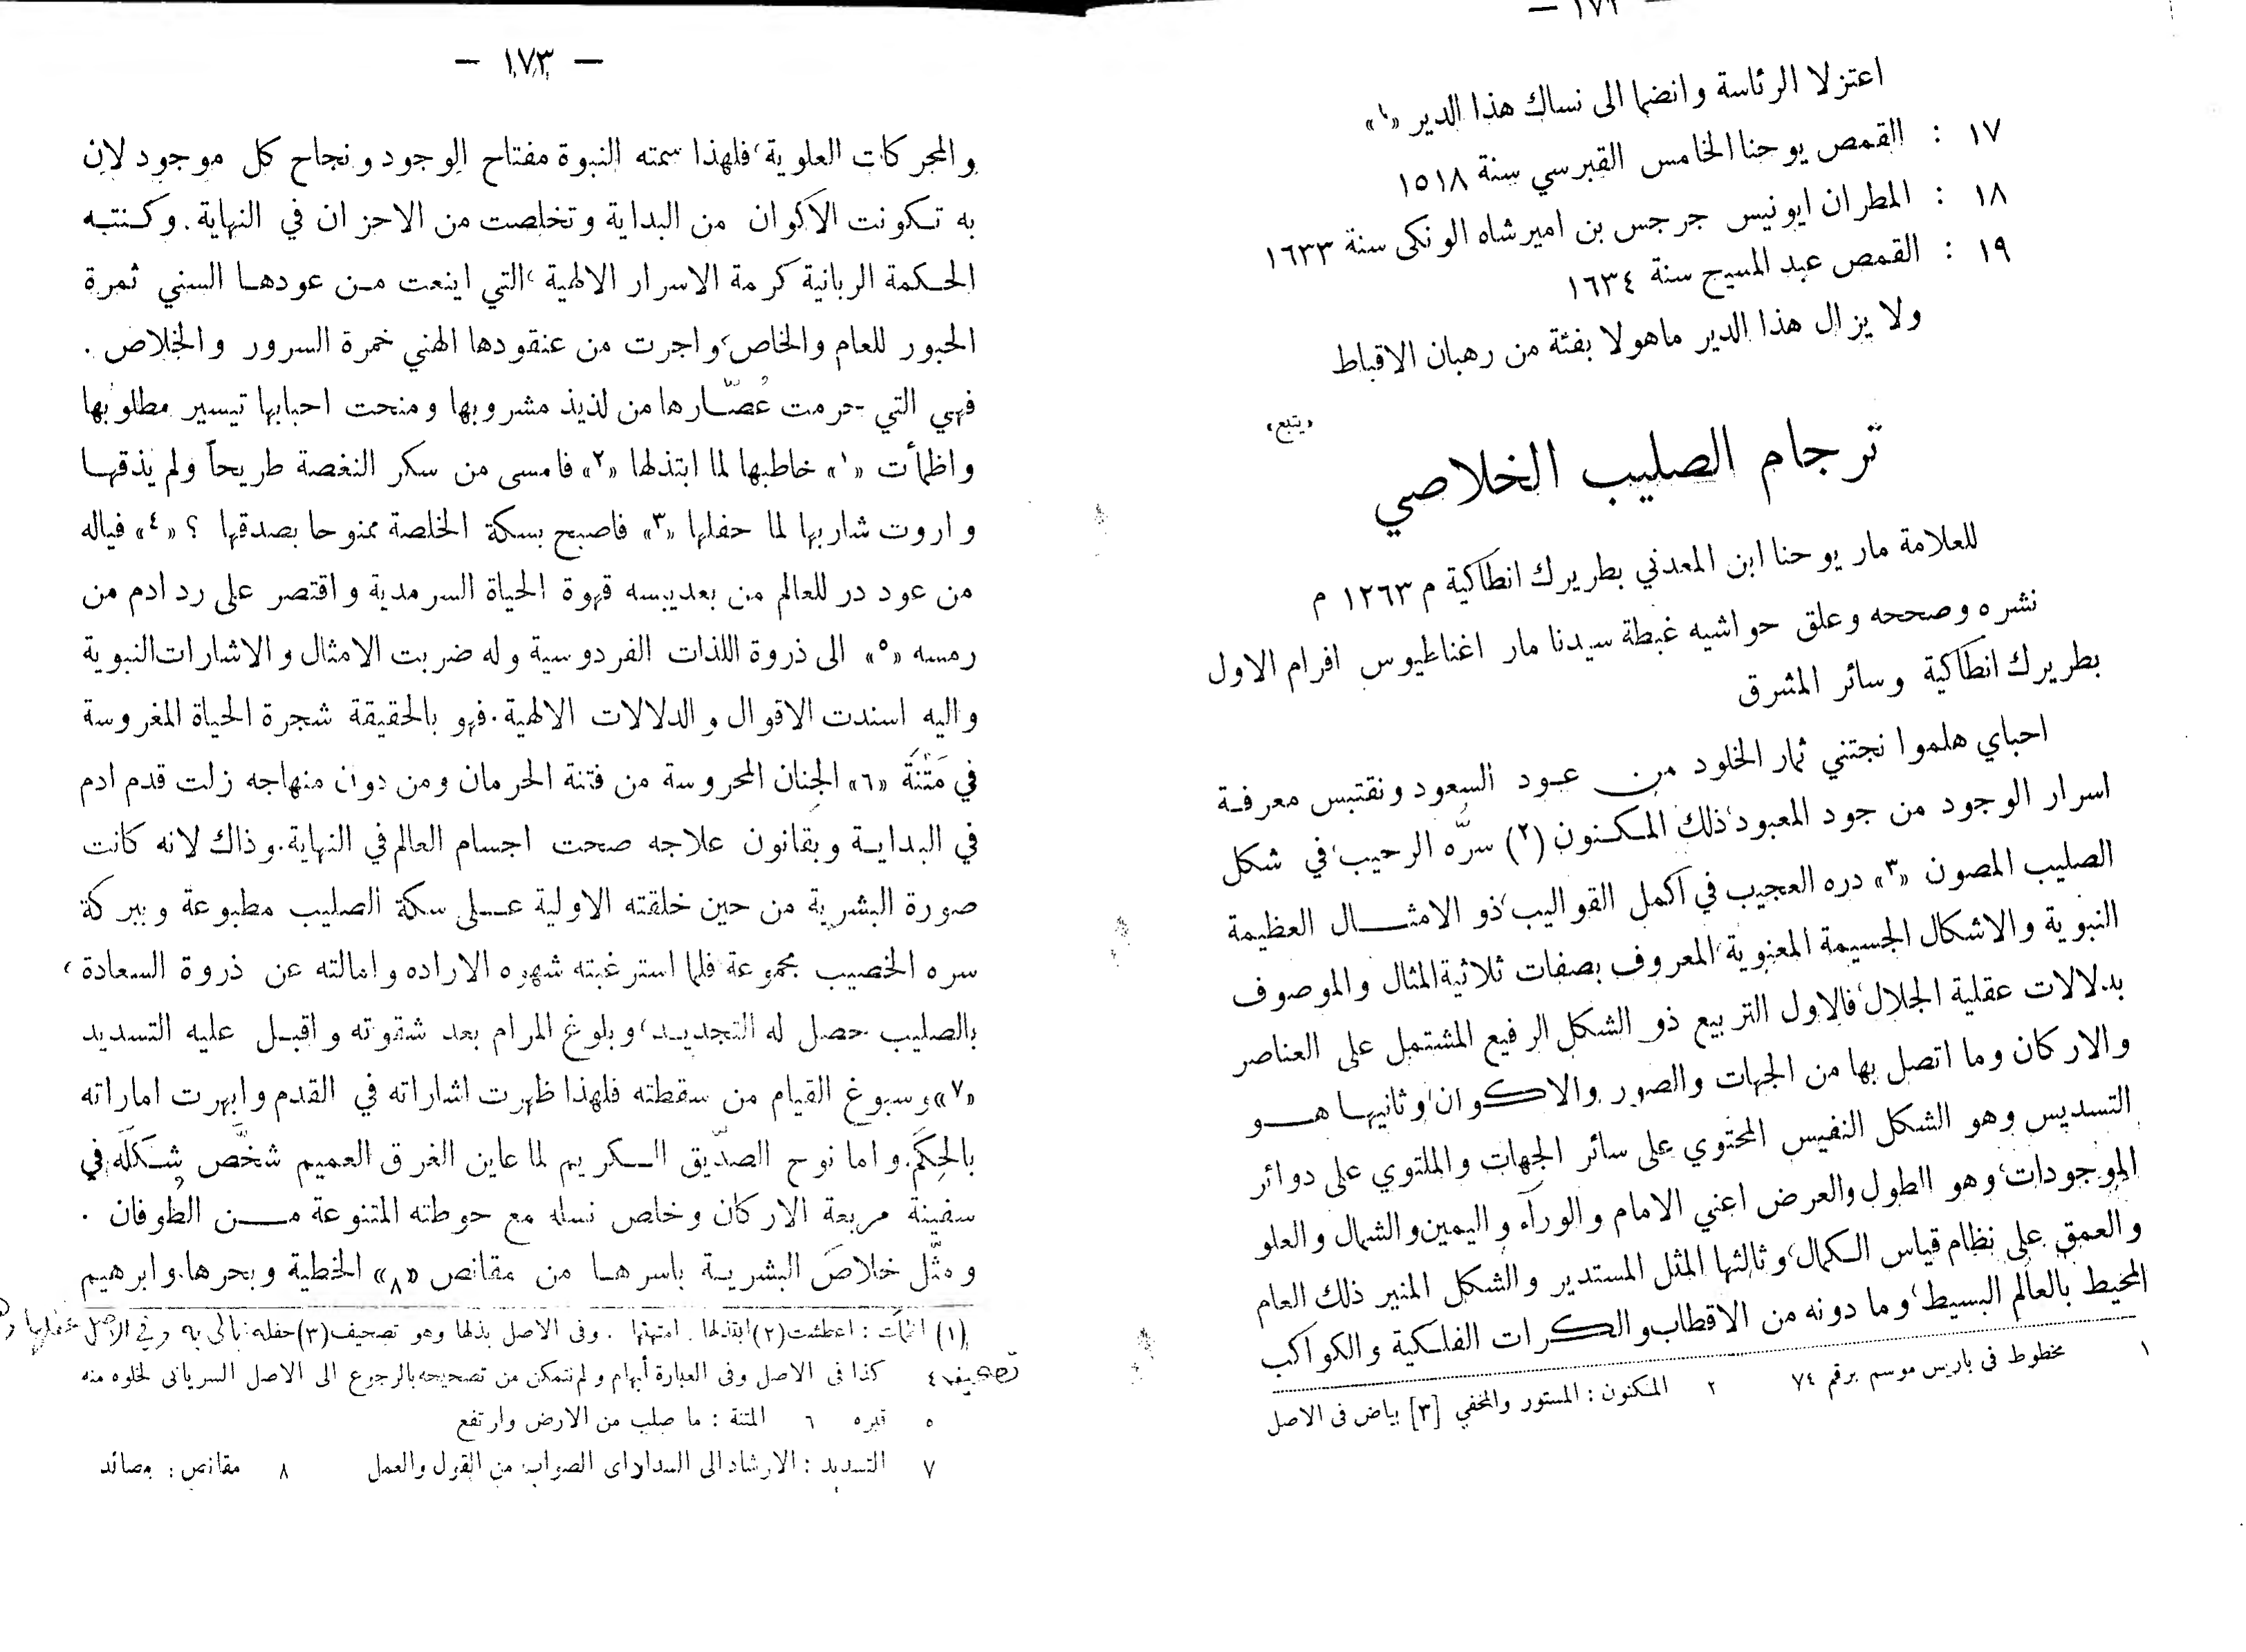 — ١٧٢ —
اعتزلا الرئاسة وانضما الى نساك هذا الدير «١»
١٧ : القمص يوحنا الخامس القبرسي سنة ١٥١٨
١٨ : المطران ايونيس جرجس بن اميرشاه الونكى سنة ١٦٣٣
١٩ : القمص عبد المسيح سنة ١٦٣٤
ولا يزال هذا الدير ماهولا بفئة من رهبان الاقباط
«يتبع»
ترجام الصليب الخلاصي
للعلامة مار يوحنا ابن المعدني بطريرك انطاكية م ١٢٦٣ م
نشره وصححه وعلق حواشيه غبطة سيدنا مار اغناطيوس افرام الاول
بطريرك انطاكية وسائر المشرق
احباي هلموا نجتني ثمار الخلود من عود السعود ونقتبس معرفة
اسرار الوجود من جود المعبود، ذلك المكنون (٢) سرّه الرحيب، في شكل
الصليب المصون «٣» دره العجيب في اكمل القواليب، ذو الامثال العظيمة
النبوية والاشكال الجسيمة المعنوية، المعروف بصفات ثلاثية المثال والموصوف
بدلالات عقلية الجلال، فالاول التربيع ذو الشكل الرفيع المشتمل على العناصر
والاركان وما اتصل بها من الجهات والصور والاكوان، وثانيها هو
التسديس وهو الشكل النفيس المحتوي على سائر الجهات والملتوي على دوائر
الموجودات، وهو الطول والعرض اعني الامام والورآء واليمين والشمال والعلو
والعمق على نظام قياس الكمال، وثالثها المثل المستدير والشكل المنير ذلك العام
المحيط بالعالم البسيط، وما دونه من الاقطاب والكرات الفلكية والكواكب
١ مخطوط فى باريس موسم برقم ٧٤ ٢ المكنون : المستور والمخفي [٣] بياض فى الاصل
— ١٧٣ —
والمحركات العلوية، فلهذا سمته النبوة مفتاح الوجود ونجاح كل موجود لان
به تكونت الاكوان من البداية وتخلصت من الاحزان في النهاية. وكنته
الحكمة الربانية كرمة الاسرار الالهية، التي اينعت من عودها السني ثمرة
الحبور للعام والخاص، واجرت من عنقودها الهني خمرة السرور والخلاص .
فهي التي حرمت عُصّارها من لذيذ مشروبها ومنحت احبابها تيسير مطلوبها
واظمأت «١» خاطبها لما ابتذلها «٢» فامسى من سكر النغصة طريحاً ولم يذقها
واروت شاربها لما حفلها «٣» فاصبح بسكة الخلصة ممنوحا بصدقها ؟ «٤» فياله
من عود در للعالم من بعديبسه قهوة الحياة السرمدية واقتصر على رد ادم من
رمسه «٥» الى ذروة اللذات الفردوسية وله ضربت الامثال والاشارات النبوية
واليه اسندت الاقوال والدلالات الالهية. فهو بالحقيقة شجرة الحياة المغروسة
في مَتْنَةَ «٦» الجِنان المحروسة من فتنة الحرمان ومن دون منهاجه زلت قدم ادم
في البداية وبقانون علاجه صحت اجسام العالم في النهاية. وذاك لانه كانت
صورة البشرية من حين خلقته الاولية على سكة الصليب مطبوعة وببركة
سره الخصيب مجموعة فلما استرغبته شهوه الاراده وامالته عن ذروة السعادة،
بالصليب حصل له التجديد، وبلوغ المرام بعد شقوته واقبل عليه التسديد
«٧» وسبوغ القيام من سقطته فلهذا ظهرت اشاراته في القدم وابهرت اماراته
بالحِكَم. واما نوح الصدّيق الكريم لما عاين الغرق العميم شخَّص شكلَه في
سفينة مربعة الاركان وخلص نسله مع حوطته المتنوعة من الطُوفان .
ومثّل خلاصَ البشرية باسرها من مقانص «٨» الخطية وبحرها. وابرهيم
(١) اظمأت : اعطشت (٢) ابتذلها . امتهنها . وفى الاصل بذلها وهو تصحيف (٣) حفله: بالى به وفي الاصل
تصحيف ٤ كذا فى الاصل وفى العبارة أبهام ولم نتمكن من تصحيحه بالرجوع الى الاصل السريانى لخلوه منه
٥ قبره ٦ المتنة : ما صلب من الارض وارتفع
٧ التسديد : الارشاد الى السداد اى الصواب من القول والعمل ٨ مقانص : مصائد